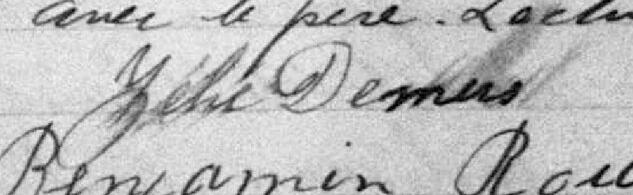 avec le père. Lectu
Zélie Demers
Benjamin Rou